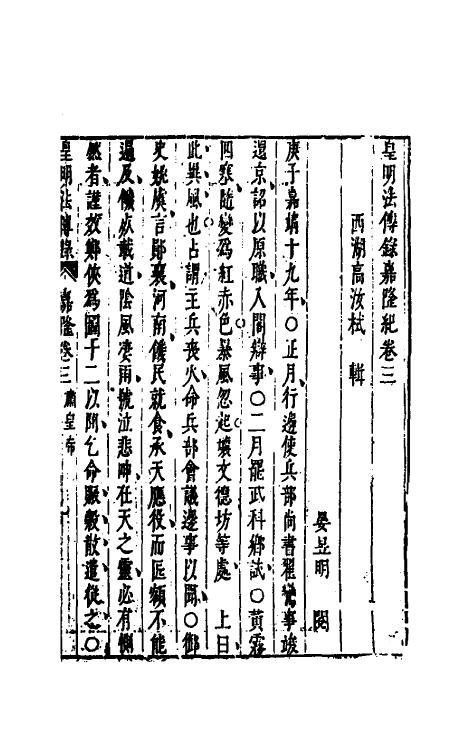 皇明法傳錄嘉隆紀卷三
西湖高汝栻　輯
晏昱明　閱
庚子嘉靖十九年○正月行邊使兵部尚書翟鑾事竣
還京詔以原職入閣辦事○二月罷武科鄉試○黃霧
四塞隨變爲紅赤色暴風忽起壞文德坊等處　上曰
此異風也占謂主兵喪火命兵部會議邊事以聞○御
史姚虞言鄖襄河南饑民就食承天應役而匠額不能
遍及饑殍載道陰風凄雨號泣悲呻在天之靈必有惻
然者謹效鄭俠爲圖十二以聞乞命賑穀散遣從之○
皇明法傳錄　嘉隆卷三　肅皇帝